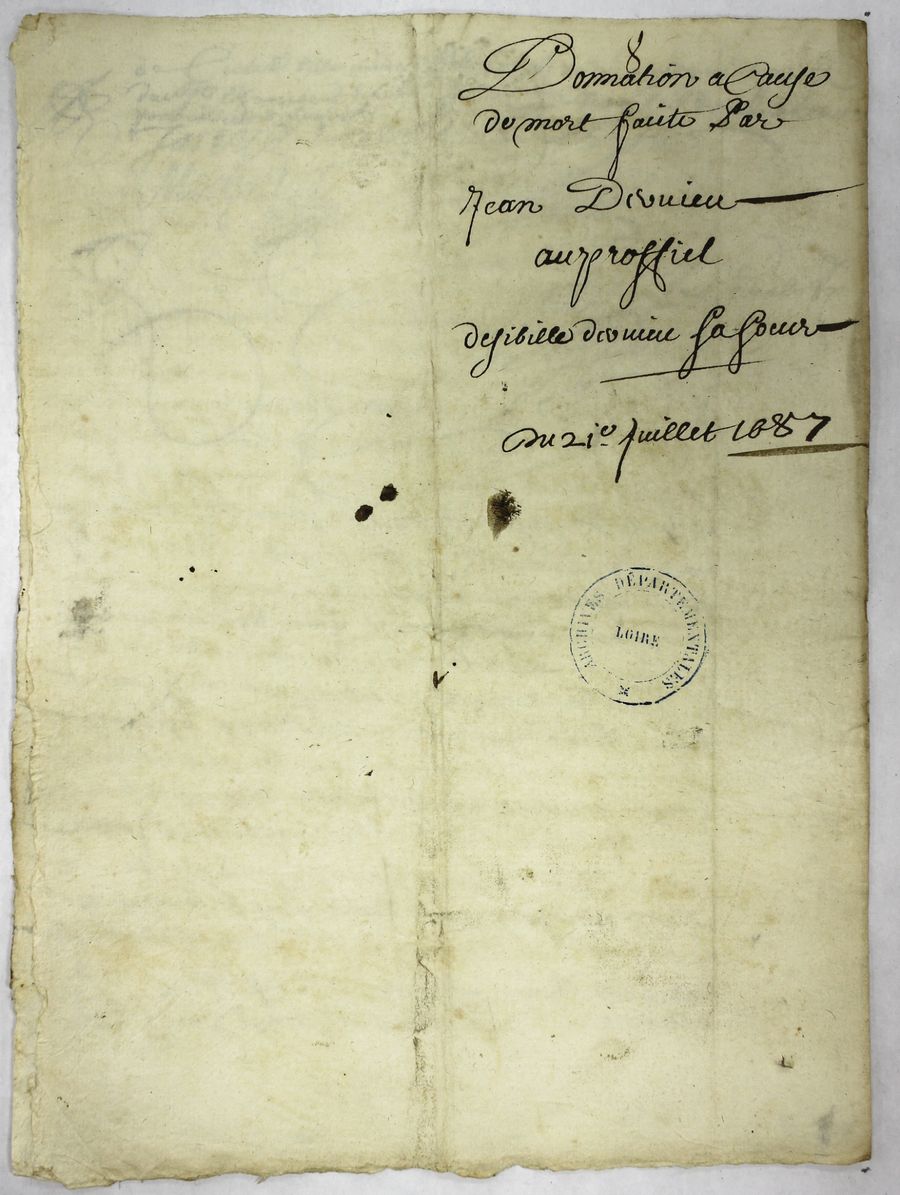 8
Donnation a Cause
de mort faite Par
Jean Devuieu
au proffict
de sibille devuieu sa soeur
Du 21e Juillet 1687
ARCHIVES DÉPARTEMENTALES
LOIRE